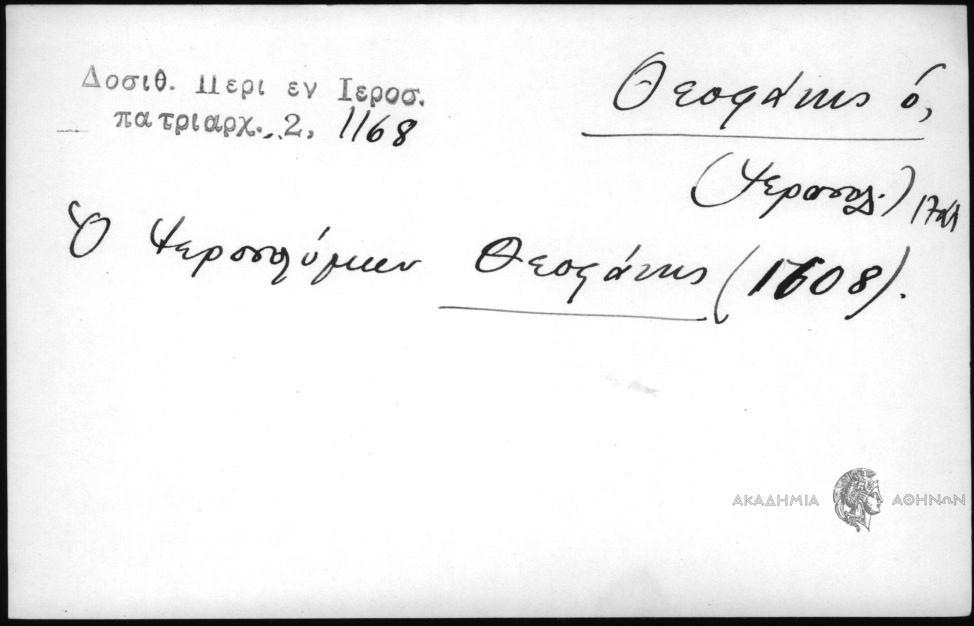 Δοσιθ. Περι εν Ιεροσ.
πατριαρχ. 2, 1168
Θεοφάνης ὁ,
(Ἱεροσολ.)
Ὁ Ἱεροσολύμων Θεοφάνης (1608).
ΑΚΑΔΗΜΙΑ ΑΘΗΝΩΝ